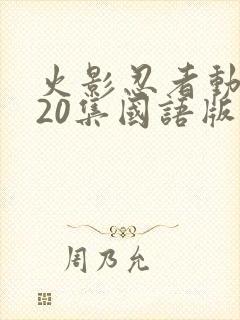 火影忍者動
20集國語版
周乃允